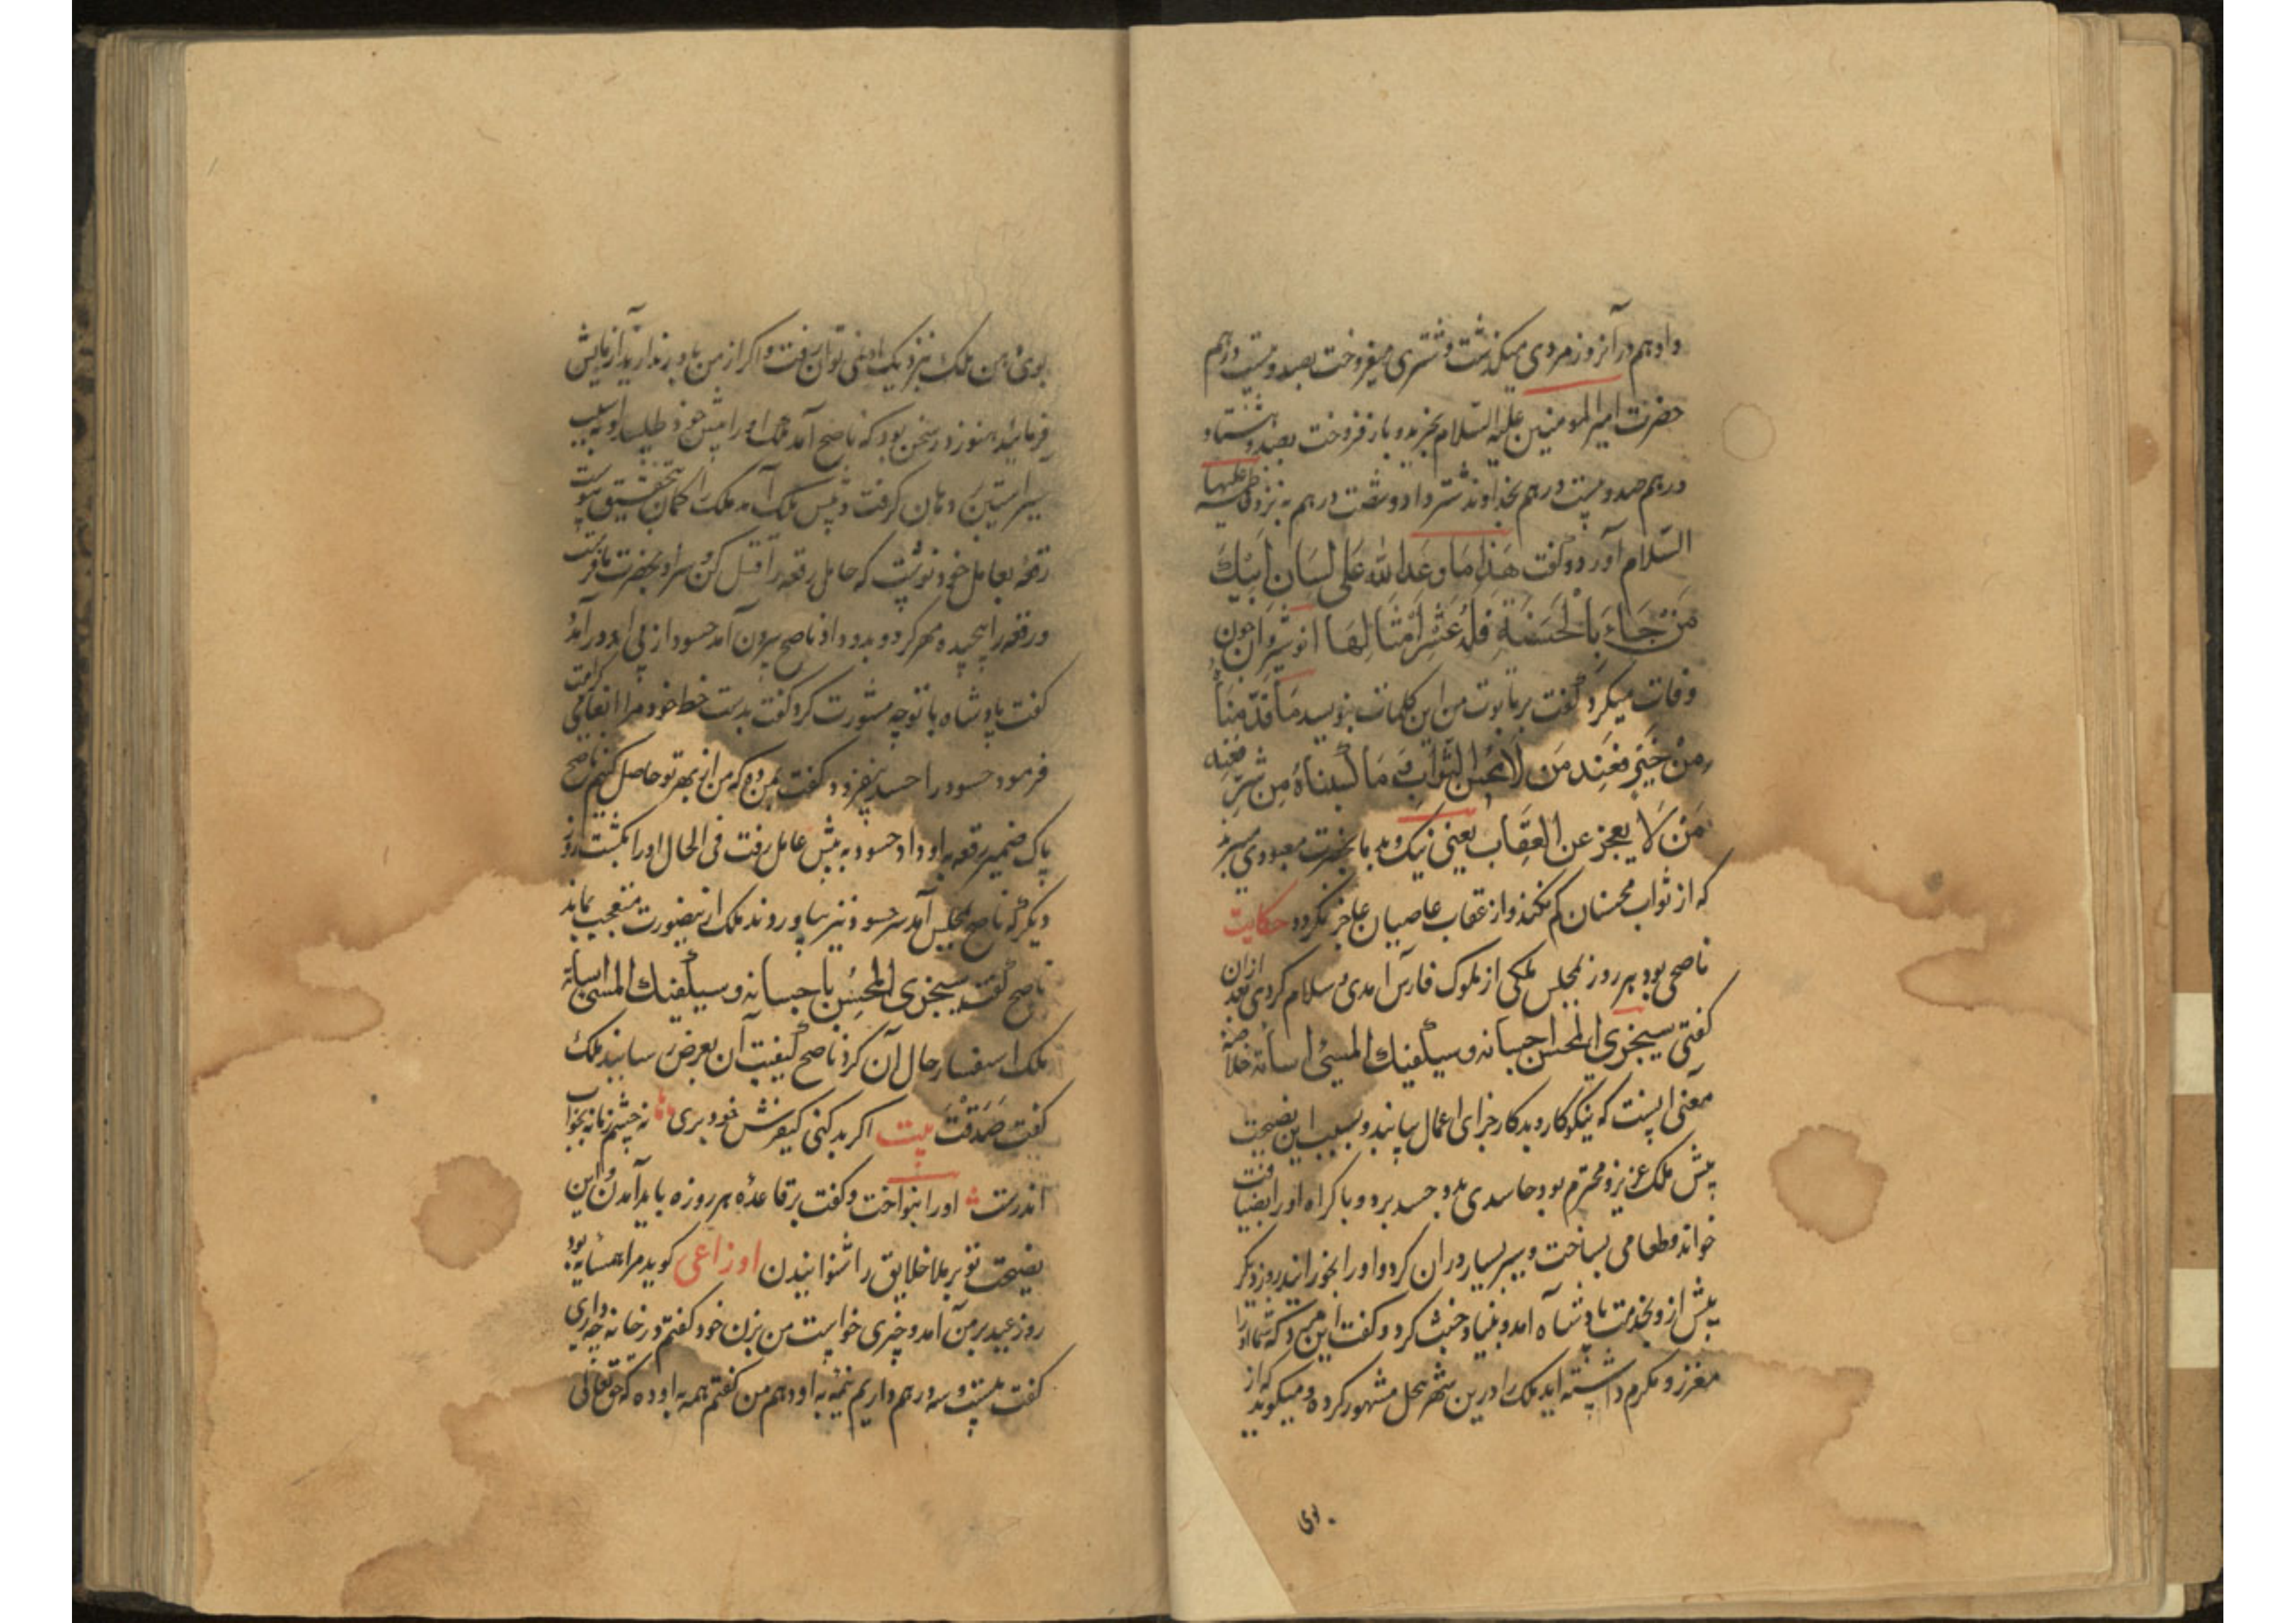 داد هم در آنروز مردی میگذشت و شتری میفروخت بصد و بیست درهم
حضرت امیر المومنین علیه السلام بخرید و باز فروخت بصد و هشتاد
درهم صد و بیست درهم بخداوند شتر داد و شصت درهم به نزد فاطمه علیها
السلام آورد و گفت هَذَا مَا وَعَدَ اللّٰه عَلَی لِسَانِ اَبِیْكَ
مَنْ جَاءَ بِالْحَسَنَةِ فَلَهُ عَشْرُ اَمْثَالِهَا انوشیروان چون
وفات میکرد گفت بر تابوت من این کلمات بنویسید مَا قَدَّمنَا
مِنْ خَیْرٍ فَعِند مَن لَا یبخس الثواب وَ مَا کسبناهُ مِن شرٍّ فعند
مَنْ لَا یعجز عن العِقَاب یعنی نیک و بد ما بحضرت معبودی میرسد
که از ثواب محسنان کم نکند و از عقاب عاصیان عاجز نگردد حکایت
ناصحی بود هر روز بمجلس ملکی از ملوک فارس آمدی و سلام کردی بعد ازان
گفتی سیجزی المحسن احسانه و سیکفیك المسئ اسائه خلاصه
معنی اینست که نیکوکار و بدکار جزای اعمال یابند و بسبب این نصیحت
پیش ملک عزیز و محترم بود حاسدی بدو حسد برد و باکراه او را بضیافت
خواند و طعامی بساخت و سیر بسیار در ان کرد و او را بخورانید روز دیگر
پیش از و بخدمت پادشاه آمد و بنیاد خبث کرد و گفت این مرد که شما او را
معزز و مکرم داشته اید ملک را درین شهر ببخل مشهور کرده و میگوید که از
بوی
بوی دهن ملک بنزدیک او نمی توان رفت و اکر از من باور ندارید آزمایش
فرمایید هنوز در سخن بود که ناصح آمد ملک او را پیش خود طلبید او بسبب
سیر آستین بر دهان گرفت و پیش ملک آمد ملک را گمان بتحقیق پیوست
رقعهٔ بعامل خود نوشت که حامل رقعه را قتل کن و سر او بحضرت ما فرست
و رقعه را پیچیده مهر کرد و بدو داد ناصح بیرون آمد حسود از پی او درآمد
گفت پادشاه با تو چه مشورت کرد گفت بدست خط خود مرا انعامی کرامت
فرمود حسود را حسد بیفزود گفت بمن ده که من از بهر تو حاصل کنیم ناصح
پاک ضمیر رقعه باو داد حسود به پیش عامل رفت فی الحال او را بکشت روز
دیگر که ناصح بمجلس آمد سر حسود نیز بیاوردند ملک ازینصورت متعجب بماند
ناصح گفت سیجزی المحسن باحسانه و سیکفیك المسئ اسائه
ملک استفسار حال آن کرد ناصح کیفیت آن بعرض رسانید ملک
گفت صَدَقْتَ بیت اکر بد کنی کیفرش خود بری نه چشم زمانه بخواب
اندرست او را بنواخت و گفت بر قاعدهٔ هر روزه باید آمدن و این
نصیحت تو بر ملا خلایق را شنوانیدن اوزاعی گوید مرا همسایه بود
روز عید بر من آمد و چیزی خواست من بزن خود گفتم در خانه چه داری
گفت بیست و سه درهم داریم نیمهٔ به او دهم من گفتم همه به او ده که حق تعالی